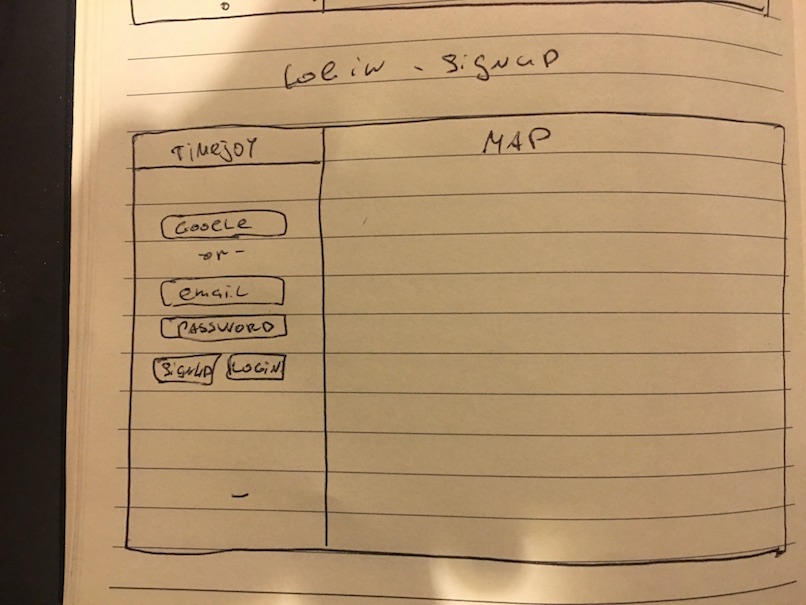 Login - Signup
TIMEJOY
MAP
GOOGLE
-or-
email
PASSWORD
SIGNUP LOGIN